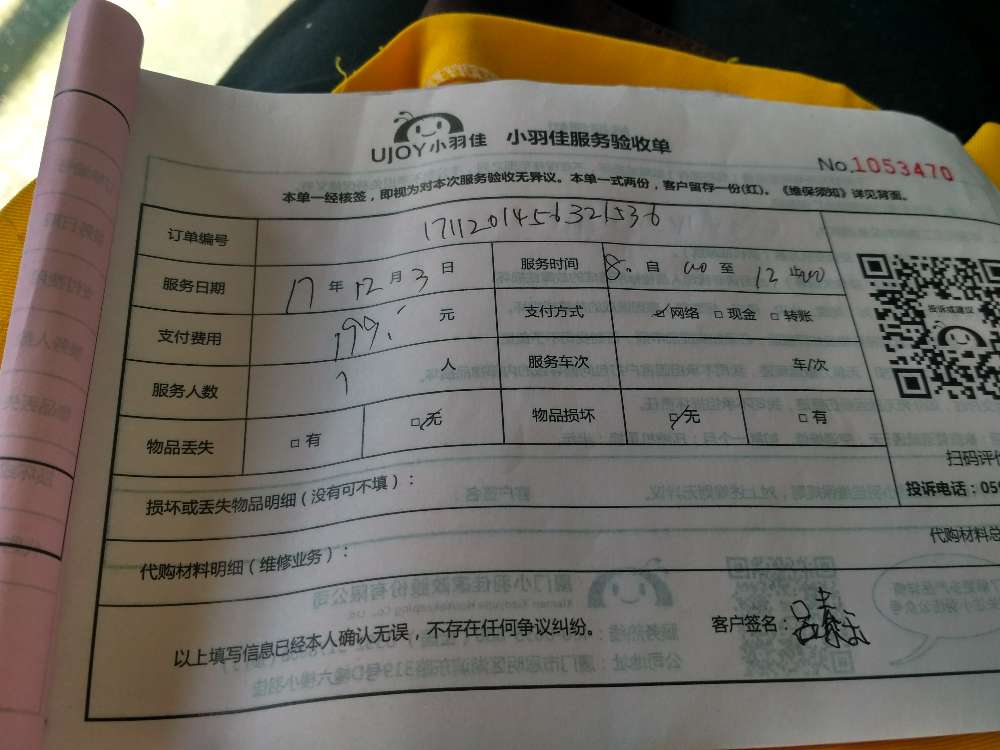 UJOY小羽佳 小羽佳服务验收单
No.1053470
本单一经核签，即视为对本次服务验收无异议。本单一式两份，客户留存一份(红)。《维保须知》详见背面。
订单编号 1711201456321536
服务日期 17年12月3日 服务时间 8:00自 至 12:00止
支付费用 199. 元 支付方式 ☑网络 □现金 □转账
服务人数 1 人 服务车次 车/次
物品丢失 □有 ☑无 物品损坏 ☑无 □有
投诉或建议
扫码评价
损坏或丢失物品明细(没有可不填)：
投诉电话：059
代购材料明细(维修业务)：
代购材料总
以上填写信息已经本人确认无误，不存在任何争议纠纷。
客户签名：